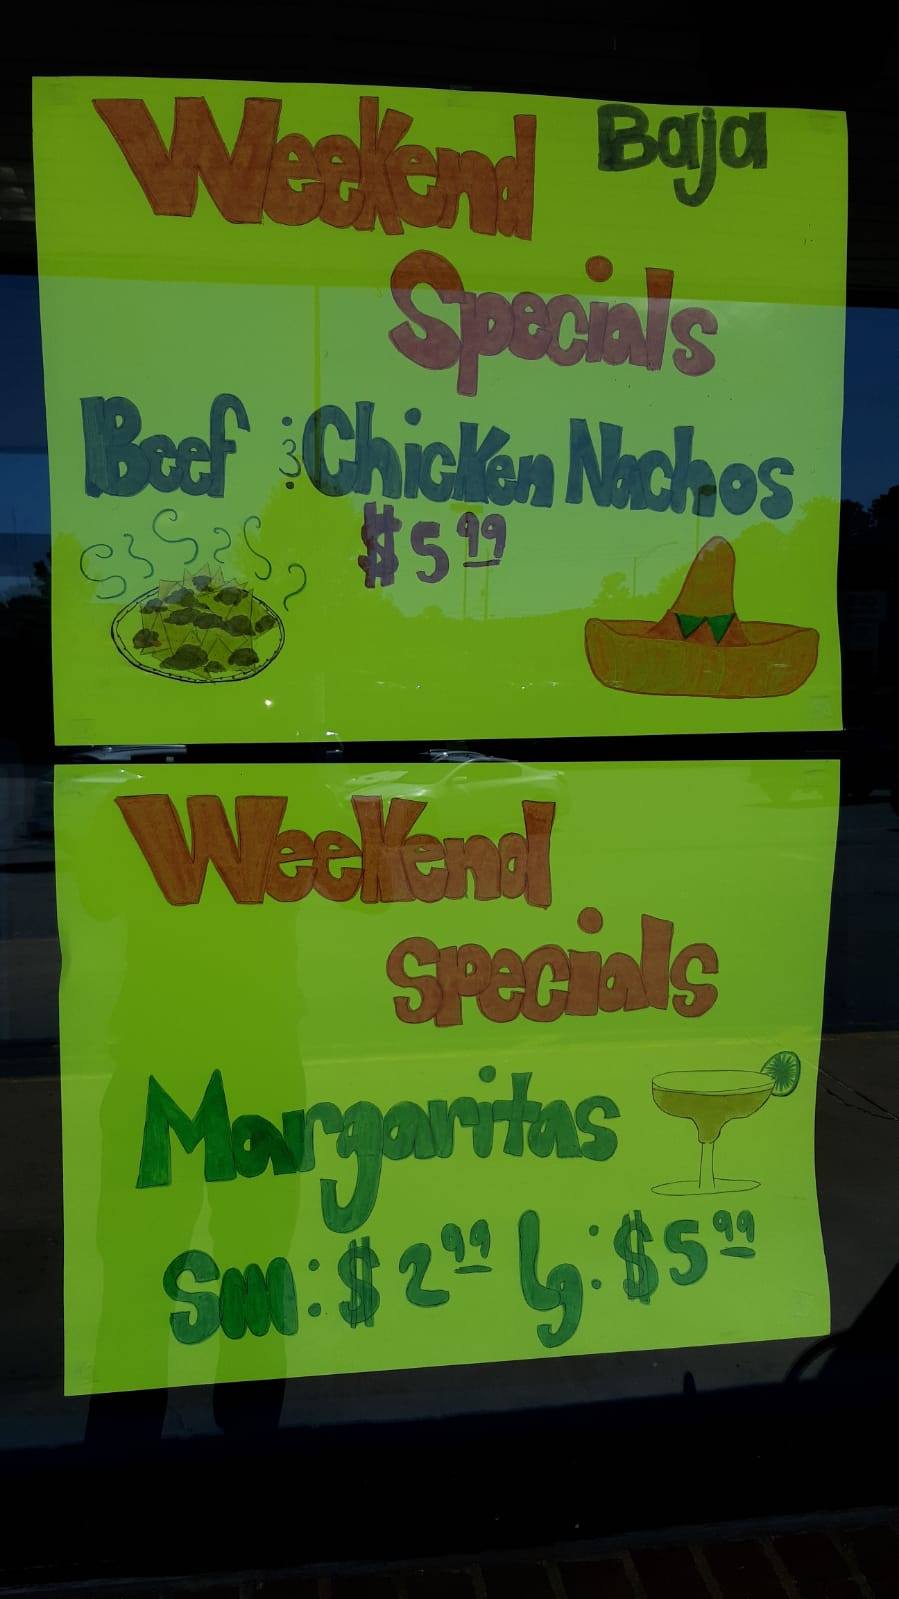 Weekend Baja
Specials
Beef & Chicken Nachos
$5.99
Weekend
Specials
Margaritas
Sm: $2.99 Lg: $5.99